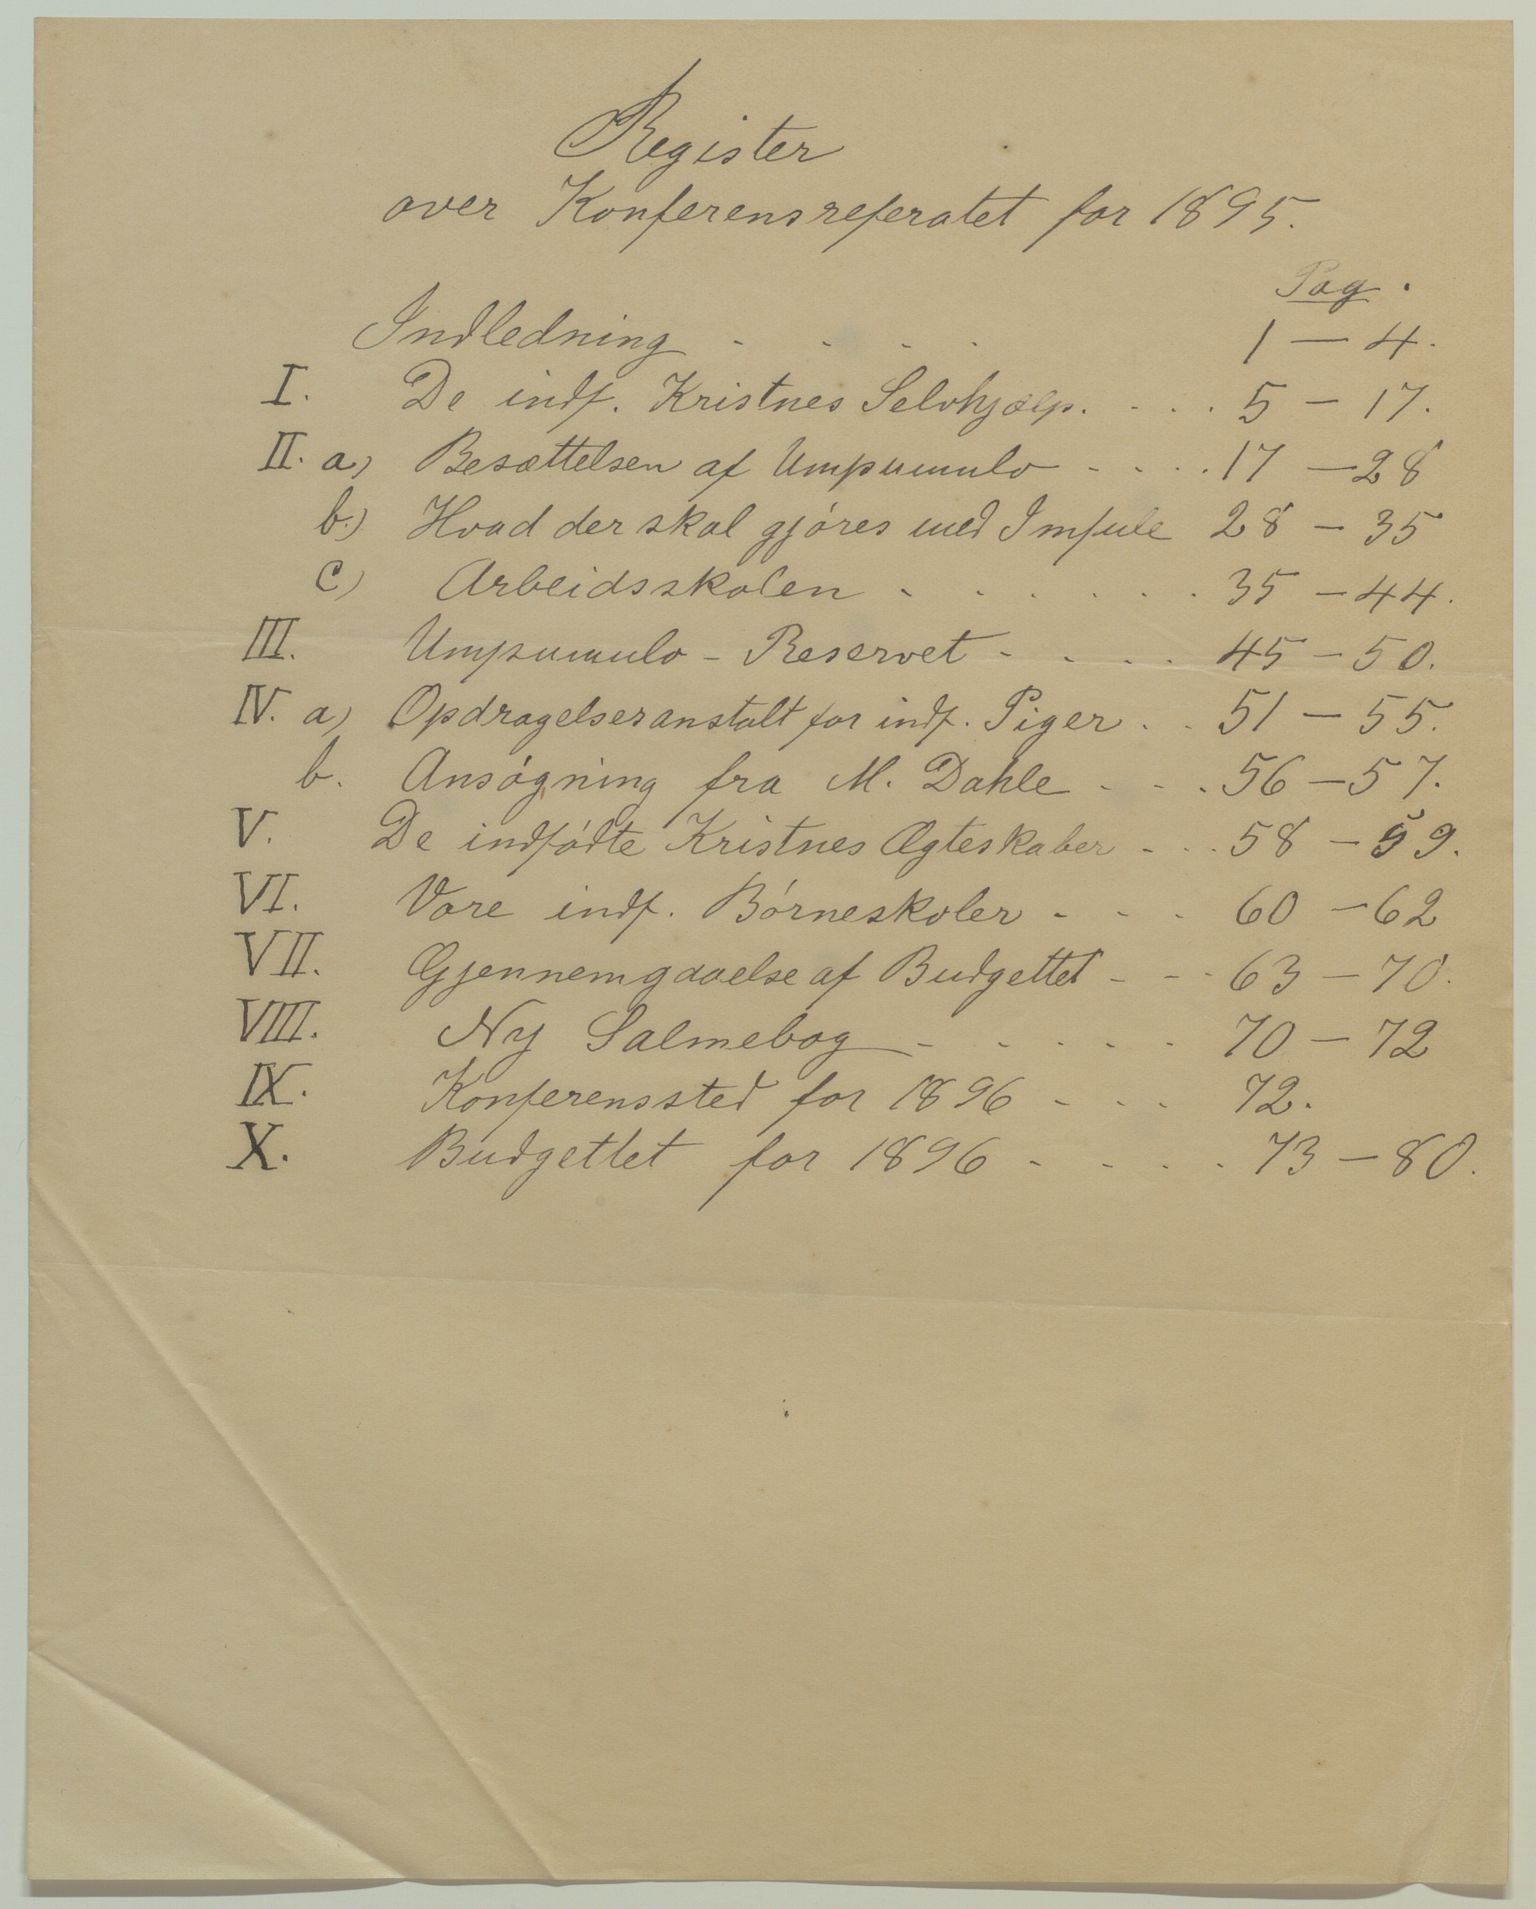 Register
over Konferensreferatet for 1895.
Pag.
Indledning - - - - 1 — 4.
I. De indf. Kristnes Selvhjælp. - - - 5 — 17.
II. a) Besættelsen af Umpumulo - - - - 17 — 28
b.) Hvad der skal gjóres med Imfule 28 — 35
c) Arbeidsskolen - - - - - - 35 — 44.
III. Umpumulo - Reservet - - - - 45 — 50.
IV. a) Opdragelsesanstalt for indf. Piger - - 51 — 55.
b. Ansógning fra M. Dahle - - - 56 — 57.
V. De indfódte Kristnes Ægteskaber - - - 58 — 59.
VI. Vore indf. Bórneskoler - - - 60 — 62
VII. Gjennemgaaelse af Budgettet - - - 63 — 70.
VIII. Ny Salmebog - - - - - 70 — 72
IX. Konferenssted for 1896 - - - 72.
X. Budgettet for 1896 - - - - 73 — 80.